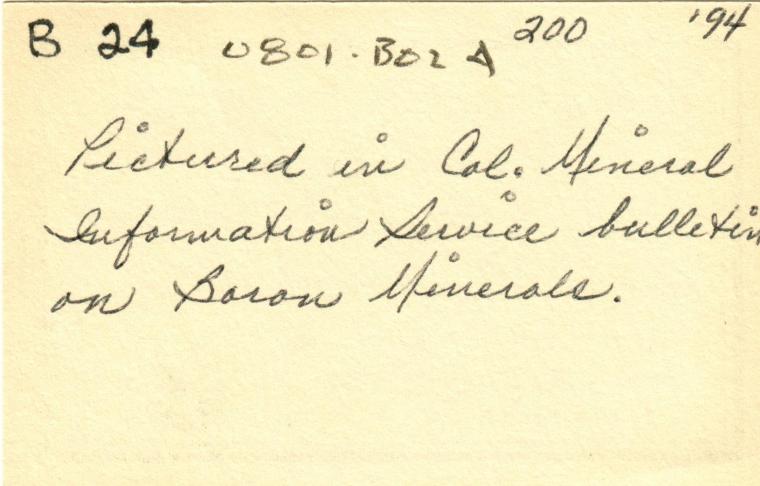 B 24 0801-B02 A 200 '94
Pictured in Cal. Mineral
Information Service bulletin
on Boron Minerals.